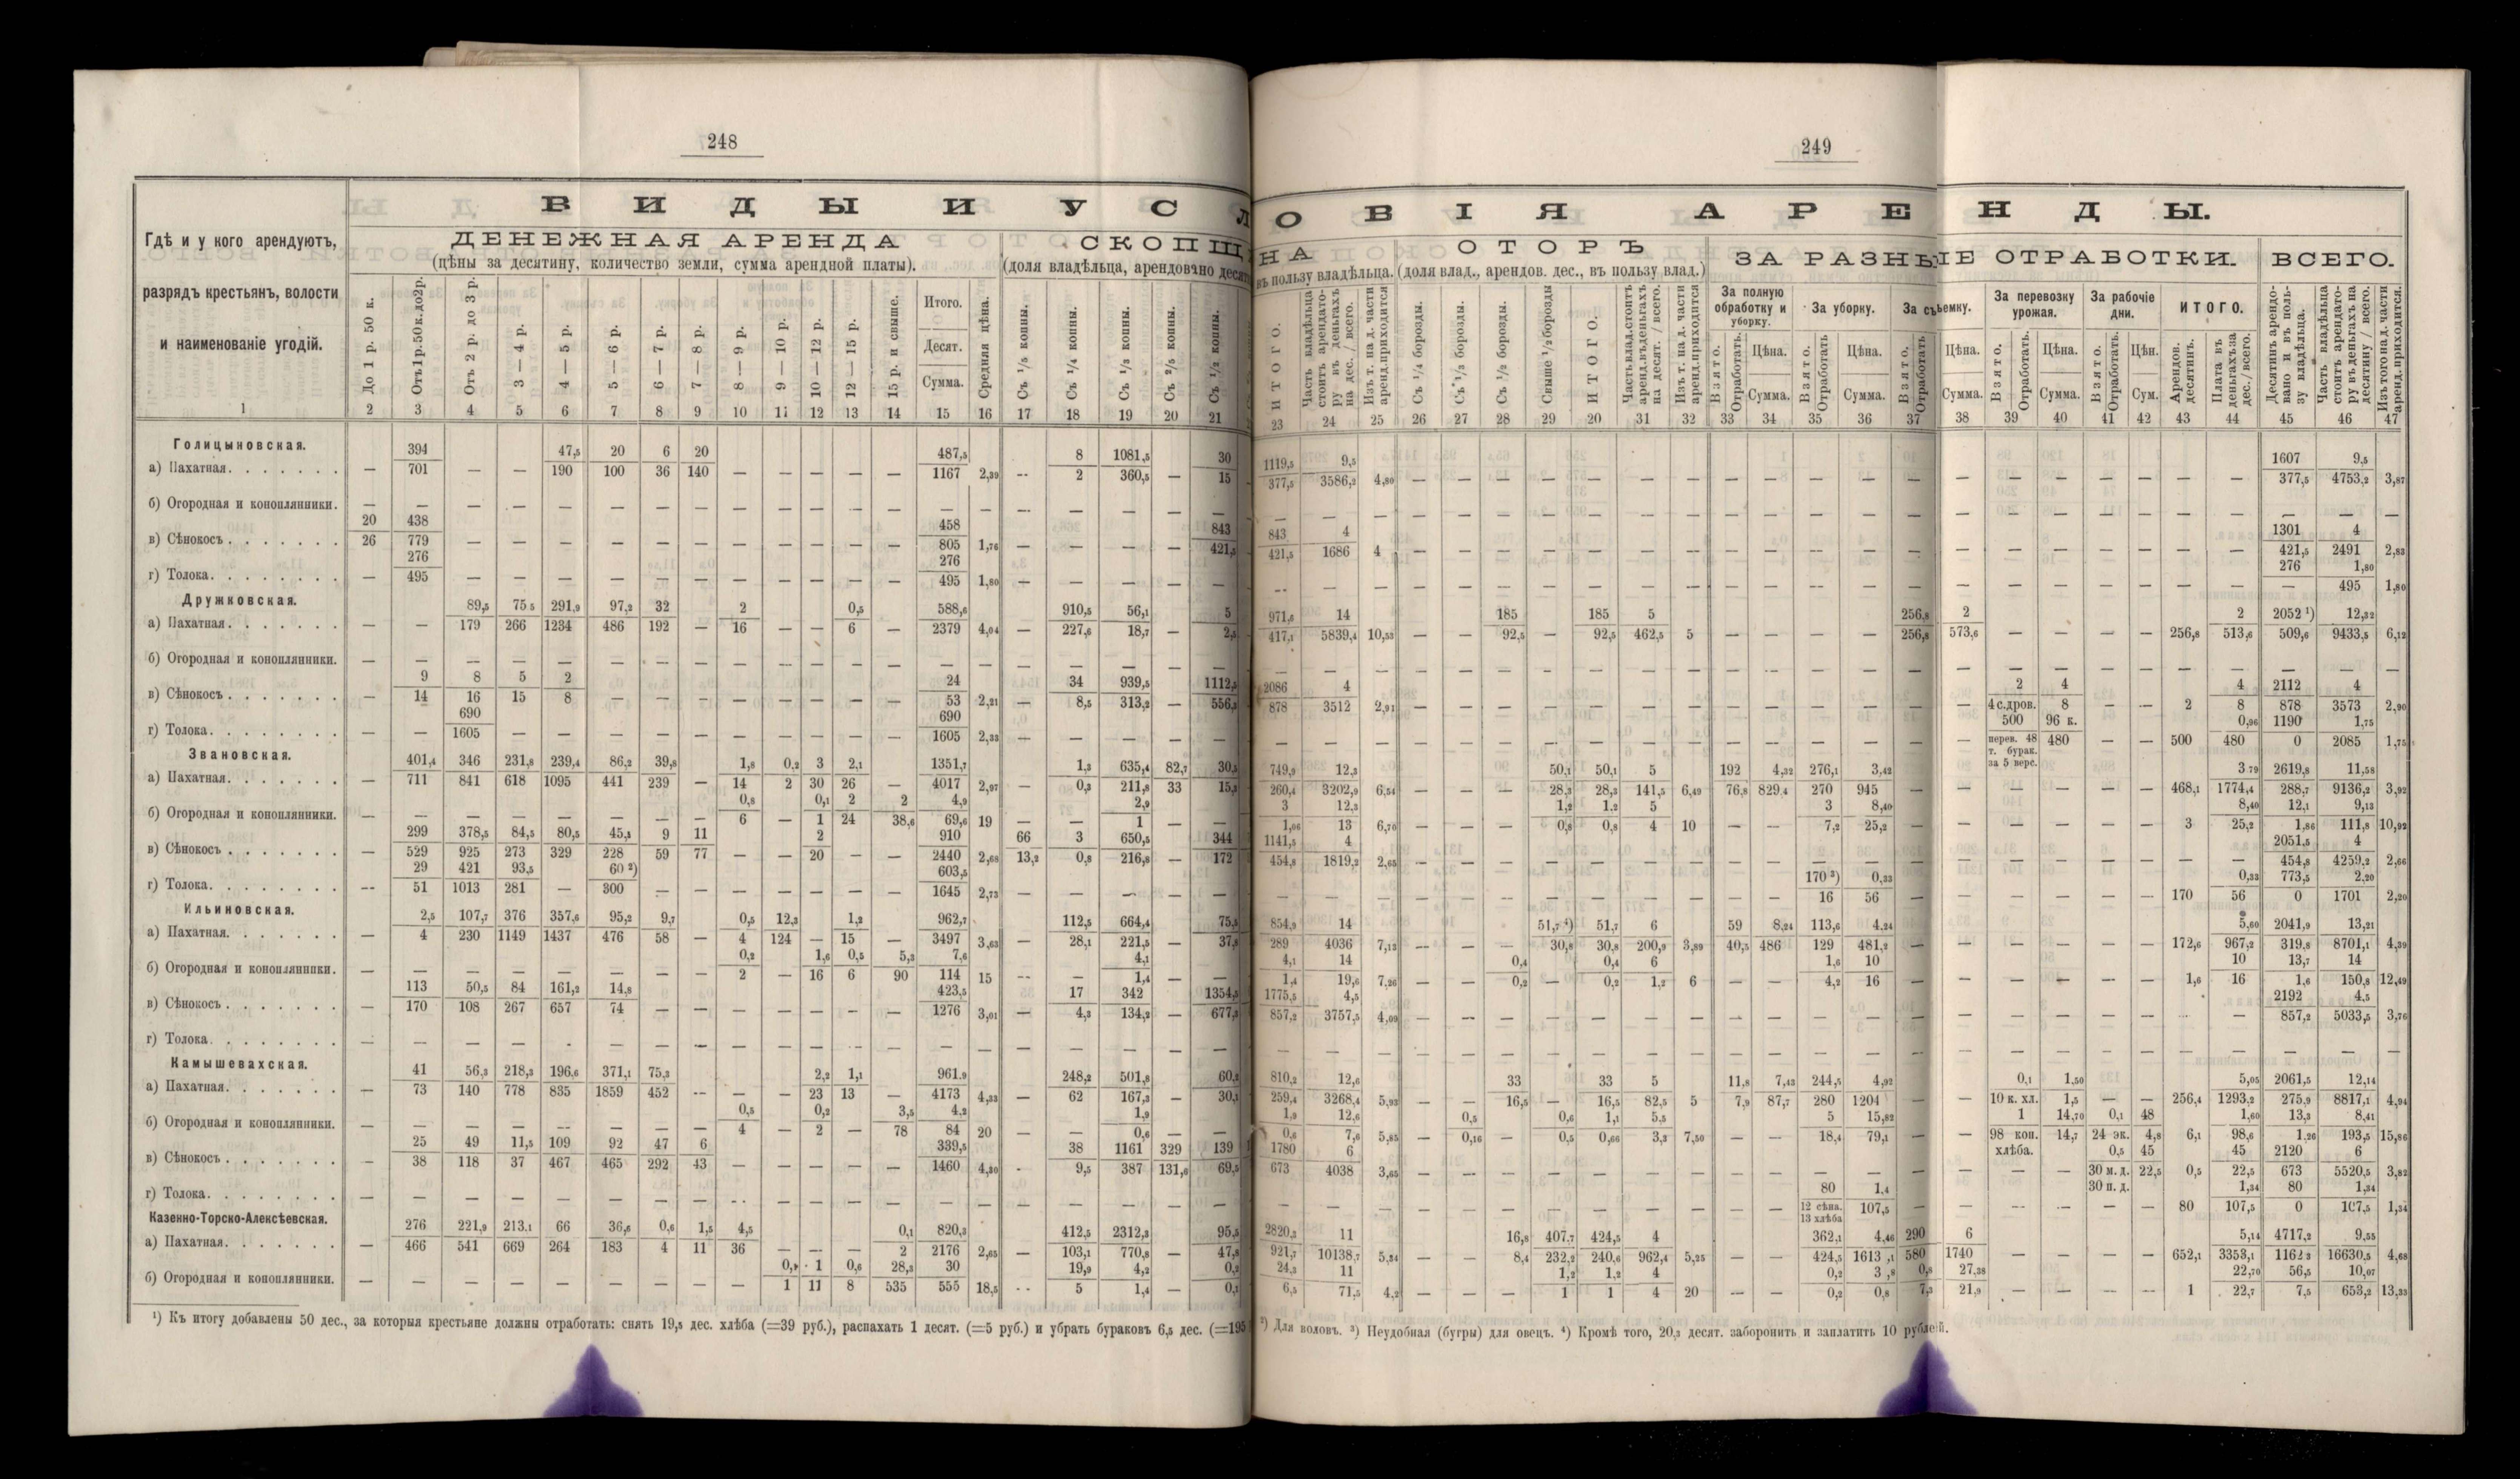 248
249
ВИДЫ И УСЛОВІЯ АРЕНДЫ.
Гдѣ и у кого арендуютъ,
разрядъ крестьянъ, волости
и наименованіе угодій.
ДЕНЕЖНАЯ АРЕНДА
(цѣны за десятину, количество земли, сумма арендной платы).
СКОПЩИНА
ОТОРЪ
(доля влад., арендов. дес., въ пользу влад.)
ЗА РАЗНЫЕ ОТРАБОТКИ.
ВСЕГО.
До 1 р. 50 к.
Отъ 1 р. 50 к. до 2 р.
Отъ 2 р. до 3 р.
3 — 4 р.
4 — 5 р.
5 — 6 р.
6 — 7 р.
7 — 8 р.
8 — 9 р.
9 — 10 р.
10 — 12 р.
12 — 15 р.
15 р. и свыше.
Итого.
Десят.
Сумма.
Средняя цѣна.
Съ 1/5 копны.
Съ 1/4 копны.
Съ 1/3 копны.
Съ 2/5 копны.
Съ 1/2 копны.
ИТОГО.
Часть владѣльца стоитъ арендатору въ деньгахъ на дес. / всего.
Изъ т. на д. части аренд. приходится
Съ 1/4 борозды.
Съ 1/3 борозды.
Съ 1/2 борозды.
Свыше 1/2 борозды
ИТОГО.
Часть влад. стоитъ аренд. въ деньгахъ на десят. / всего.
Изъ т. на д. части аренд. приходится
За полную обработку и уборку.
За уборку.
За съемку.
За перевозку урожая.
За рабочіе дни.
ИТОГО.
Взято. Отработать.
Цѣна.
Сумма.
Взято. Отработать
Цѣна.
Сумма.
Взято. Отработать
Цѣна.
Сумма.
Взято. Отработать.
Цѣна.
Сумма.
Взято. Отработать.
Цѣн.
Сум.
Арендов. десятинъ.
Плата въ деньгахъ за дес. / всего.
Десятинъ арендовано и въ пользу владѣльца.
Часть владѣльца стоитъ арендатору въ деньгахъ на десятину / всего.
Изъ того на д. части аренд. приходится.
1 2 3 4 5 6 7 8 9 10 11 12 13 14 15 16 17 18 19 20 21
23 24 25 26 27 28 29 20 31 32 33 34 35 36 37 38 39 40 41 42 43 44 45 46 47
Голицыновская.
394 47,5 20 6 20 487,5 8 1081,5 30 1119,5 9,5 1607 9,5
а) Пахатная. — 701 — — 190 100 36 140 — — — — — 1167 2,39 -- 2 360,5 — 15 377,5 3586,2 4,80 — 377,5 4753,2 3,87
б) Огородная и коноплянники. —
20 438 458 843 843 4 1301 4
в) Сѣнокосъ 26 779 — 805 1,76 — 421,5 421,5 1686 4 — 421,5 2491 2,83
276 276 276 1,80
г) Толока. — 495 — 495 1,80 — 495 1,80
Дружковская.
89,5 75 5 291,9 97,2 32 2 0,5 588,6 910,5 56,1 5 971,6 14 185 185 5 256,8 2 2 2052 ¹) 12,32
а) Пахатная. — — 179 266 1234 486 192 — 16 — — 6 — 2379 4,04 — 227,6 18,7 — 2,5 417,1 5839,4 10,53 — — 92,5 — 92,5 462,5 5 — 256,8 573,6 — 256,8 513,6 509,6 9433,5 6,12
б) Огородная и коноплянники. —
9 8 5 2 24 34 939,5 1112,5 2086 4 2 4 4 2112 4
в) Сѣнокосъ — 14 16 15 8 — 53 2,21 — 8,5 313,2 — 556,3 878 3512 2,91 — 4 с. дров. 8 — — 2 8 878 3573 2,90
690 690 500 96 к. 0,96 1190 1,75
г) Толока. — — 1605 — 1605 2,33 — перев. 48 т. бурак. за 5 верс. 480 — — 500 480 0 2085 1,75
Звановская.
401,4 346 231,8 239,4 86,2 39,8 1,8 0,2 3 2,1 1351,7 1,3 635,4 82,7 30,5 749,9 12,3 50,1 50,1 5 192 4,32 276,1 3,42 3 79 2619,8 11,58
а) Пахатная. — 711 841 618 1095 441 239 — 14 2 30 26 — 4017 2,97 — 0,3 211,8 33 15,3 260,4 3202,9 6,54 — — — 28,3 28,3 141,5 6,49 76,8 829 4 270 945 — 468,1 1774,4 288,7 9136,2 3,92
0,8 0,1 2 2 4,9 2,9 3 12,3 1,2 1,2 5 3 8,40 8,40 12,1 9,13
б) Огородная и коноплянники. — 6 — 1 24 38,6 69,6 19 — — 1 — — 1,06 13 6,70 — — — 0,8 0,8 4 10 — — 7,2 25,2 — 3 25,2 1,86 111,8 10,92
299 378,5 84,5 80,5 45,5 9 11 2 910 66 3 650,5 344 1141,5 4 2051,5 4
в) Сѣнокосъ — 529 925 273 329 228 59 77 — — 20 — — 2440 2,68 13,2 0,8 216,8 — 172 454,8 1819,2 2,65 — 454,8 4259,2 2,66
29 421 93,5 60 ²) 603,5 170 ³) 0,33 0,33 773,5 2,20
г) Толока. -- 51 1013 281 — 300 — 1645 2,73 — 16 56 — 170 56 0 1701 2,20
Ильиновская.
2,5 107,7 376 357,6 95,2 9,7 0,5 12,3 1,2 962,7 112,5 664,4 75,5 854,9 14 51,7 ⁴) 51,7 6 59 8,24 113,6 4,24 5,60 2041,9 13,21
а) Пахатная. — 4 230 1149 1437 476 58 — 4 124 — 15 — 3497 3,63 — 28,1 221,5 — 37,8 289 4036 7,13 — — — 30,8 30,8 200,9 3,89 40,5 486 129 481,2 — 172,6 967,2 319,8 8701,1 4,39
0,2 1,6 0,5 5,3 7,6 4,1 4,1 14 0,4 0,4 6 1,6 10 10 13,7 14
б) Огородная и коноплянники. — 2 — 16 6 90 114 15 -- — 1,4 — — 1,4 19,6 7,26 — — 0,2 — 0,2 1,2 6 — — 4,2 16 — 1,6 16 1,6 150,8 12,49
113 50,5 84 161,2 14,8 423,5 17 342 1354,5 1775,5 4,5 2192 4,5
в) Сѣнокосъ — 170 108 267 657 74 — 1276 3,01 — 4,3 134,2 — 677,3 857,2 3757,5 4,09 — 857,2 5033,5 3,76
г) Толока. —
Камышевахская.
41 56,3 218,3 196,6 371,1 75,3 2,2 1,1 961,9 248,2 501,8 60,2 810,2 12,6 33 33 5 11,8 7,43 244,5 4,92 0,1 1,50 5,05 2061,5 12,14
а) Пахатная. — 73 140 778 835 1859 452 -- — — 23 13 — 4173 4,33 — 62 167,3 — 30,1 259,4 3268,4 5,93 — — 16,5 — 16,5 82,5 5 7,9 87,7 280 1204 — — 10 к. хл. 1,5 — — 256,4 1293,2 275,9 8817,1 4,94
0,5 0,2 3,5 4,2 1,9 1,9 12,6 0,5 0,6 1,1 5,5 5 15,82 1 14,70 0,1 48 1,60 13,3 8,41
б) Огородная и коноплянники. — 4 — 2 — 78 84 20 — — 0,6 — — 0,6 7,6 5,85 — 0,16 — 0,5 0,66 3,3 7,50 — — 18,4 79,1 — — 98 коп. хлѣба. 14,7 24 эк. 4,8 6,1 98,6 1,26 193,5 15,86
25 49 11,5 109 92 47 6 339,5 38 1161 329 139 1780 6 0,5 45 45 2120 6
в) Сѣнокосъ — 38 118 37 467 465 292 43 — 1460 4,30 - 9,5 387 131,6 69,5 673 4038 3,65 — 30 м. д. 30 п. д. 22,5 0,5 22,5 673 5520,5 3,82
80 1,4 1,34 80 1,34
г) Толока. — 12 сѣна. 13 хлѣба 107,5 — 80 107,5 0 107,5 1,34
Казенно-Торско-Алексѣевская.
276 221,9 213,1 66 36,6 0,6 1,5 4,5 0,1 820,3 412,5 2312,3 95,5 2820,3 11 16,8 407,7 424,5 4 362,1 4,46 290 6 5,14 4717,2 9,55
а) Пахатная. — 466 541 669 264 183 4 11 36 — — — 2 2176 2,65 — 103,1 770,8 — 47,8 921,7 10138,7 5,34 — — 8,4 232,2 240,6 962,4 5,25 — — 424,5 1613,1 580 1740 — 652,1 3353,1 1162 3 16630,5 4,68
1 0,6 28,3 30 19,9 4,2 0,2 24,3 11 1,2 1,2 4 0,2 0,8 27,38 22,70 56,5 10,07
б) Огородная и коноплянники. — 1 11 8 535 555 18,5 -- 5 1,4 — 0,1 6,5 71,5 4,2 — — — 1 1 4 20 — — 0,2 0,8 7,3 21,9 — 1 22,7 7,5 653,2 13,33
¹) Къ итогу добавлены 50 дес., за которыя крестьяне должны отработать: снять 19,5 дес. хлѣба (=39 руб.), распахать 1 десят. (=5 руб.) и убрать бураковъ 6,5 дес. (=195
²) Для воловъ. ³) Неудобная (бугры) для овецъ. ⁴) Кромѣ того, 20,3 десят. заборонить и заплатить 10 рублей.